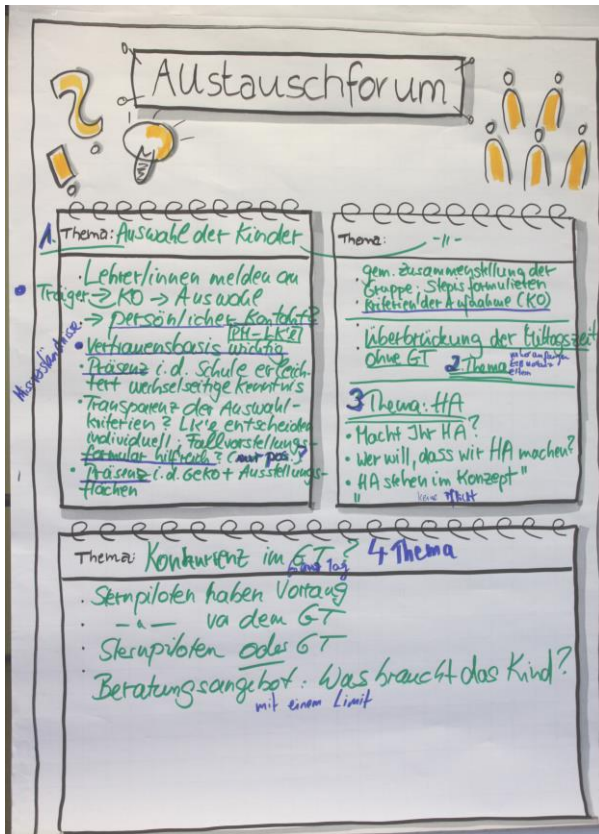 Austauschforum
1. Thema: Auswahl der Kinder
• Lehrer/innen melden an
• Träger → KO → Auswahl
→ persönlicher Kontakt?
PM-LK'e
Missverständnisse
• Vertrauensbasis wichtig
• Präsenz i.d. Schule erleich-
tert wechselseitige Kenntnis
• Transparenz der Auswahl-
kriterien? LK'e entscheiden
individuell; Fallvorstellungs-
formular hilfreich? (nur pos.?)
• Präsenz i.d. GeKo + Ausstellungs-
flächen
Thema: -11-
gem. Zusammenstellung der
Gruppe: Stepis formulieren
• Kriterien der Aufnahme (KO)
• Überbrückung der Mittagszeit
ohne GT
2. Thema
eltern
3 Thema: HA
• Macht Ihr HA?
• Wer will, dass wir HA machen?
• "HA stehen im Konzept"
keine Pflicht
Thema: Konkurrenz im GT? 4 Thema
Ganztag
• Sternpiloten haben Vorrang
• -"- vor dem GT
• Sternpiloten oder GT
Beratungsangebot: Was braucht das Kind?
mit einem Limit